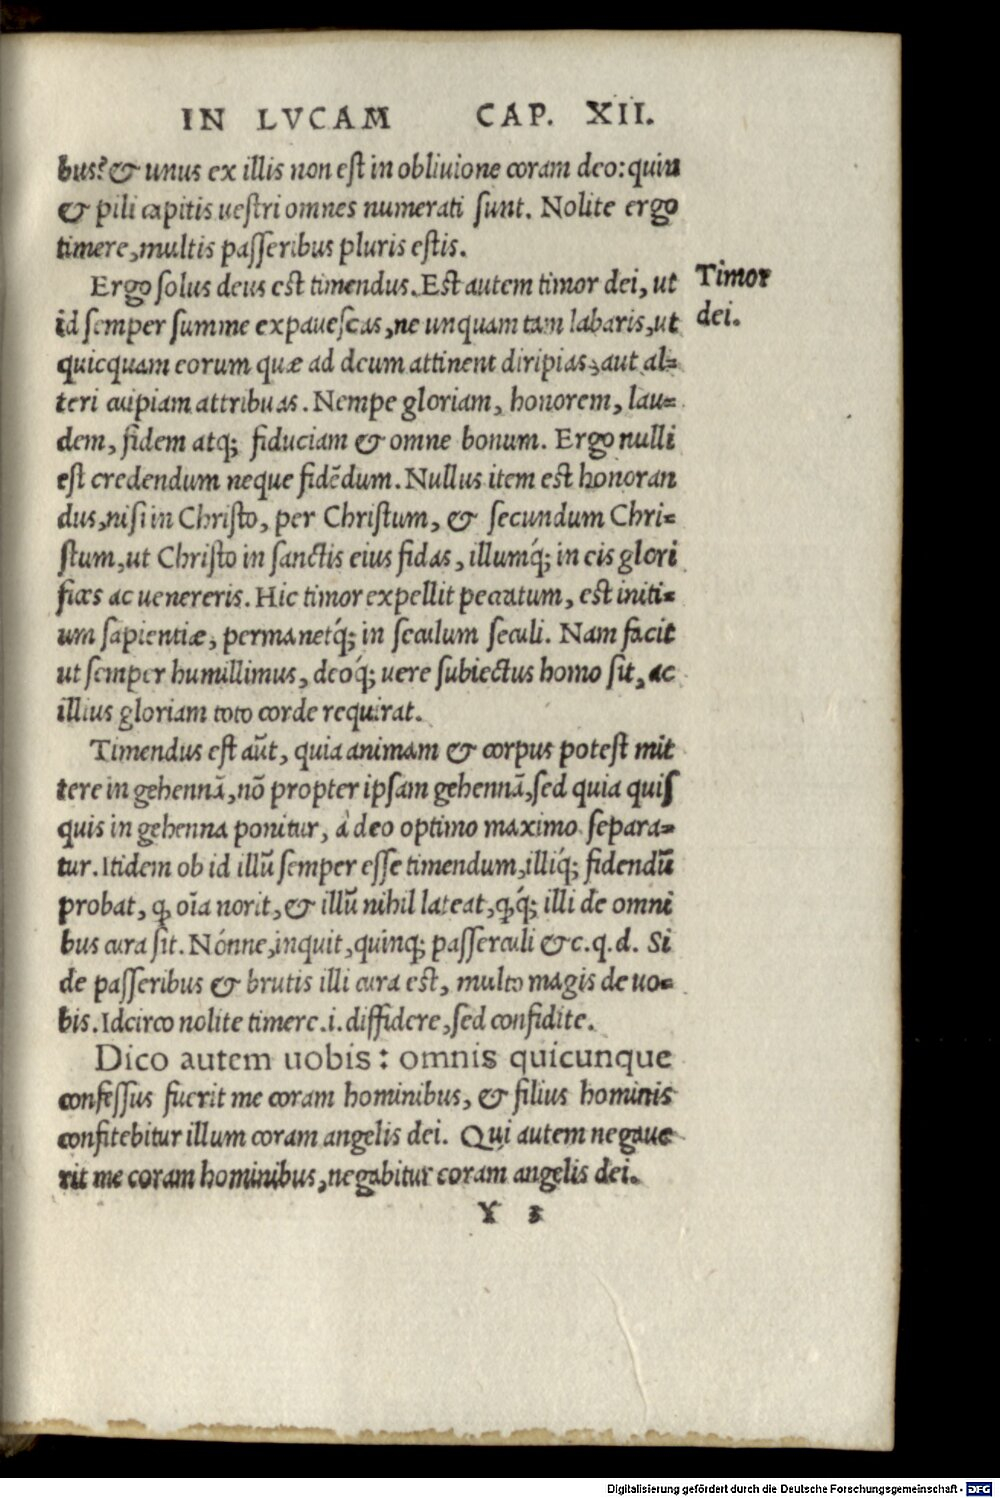 IN LVCAM CAP. XII.
bus? & unus ex illis non est in obliuione coram deo: quin
& pili capitis uestri omnes numerati sunt. Nolite ergo
timere, multis passeribus pluris estis.
Ergo solus deus est timendus. Est autem timor dei, ut
id semper summe expauescas, ne unquam tam labaris, ut
quicquam eorum quæ ad deum attinent diripias, aut al=
teri cupiam attribuas. Nempe gloriam, honorem, lau=
dem, fidem atq; fiduciam & omne bonum. Ergo nulli
est credendum neque fidẽdum. Nullus item est honoran
dus, nisi in Christo, per Christum, & secundum Chri=
stum, ut Christo in sanctis eius fidas, illumq́; in eis glori
fices ac uenereris. Hic timor expellit peccatum, est initi=
um sapientiæ, permanetq́; in seculum seculi. Nam facit
ut semper humillimus, deoq́; uere subiectus homo sit, ac
illius gloriam toto corde requirat.
Timendus est aũt, quia animam & corpus potest mit
tere in gehennã, nõ propter ipsam gehennã, sed quia quis
quis in gehenna ponitur, à deo optimo maximo separa=
tur. Itidem ob id illũ semper esse timendum, illiq́; fidendũ
probat, ꝙ oĩa norit, & illũ nihil lateat, ꝙq́; illi de omni
bus cura sit. Nónne, inquit, quinq; passerculi &c. q. d. Si
de passeribus & brutis illi cura est, multo magis de uo=
bis. Idcirco nolite timere .i. diffidere, sed confidite.
Dico autem uobis: omnis quicunque
confessus fuerit me coram hominibus, & filius hominis
confitebitur illum coram angelis dei. Qui autem negaue
rit me coram hominibus, negabitur coram angelis dei.
Y 3
Timor
dei.
Digitalisierung gefördert durch die Deutsche Forschungsgemeinschaft - DFG